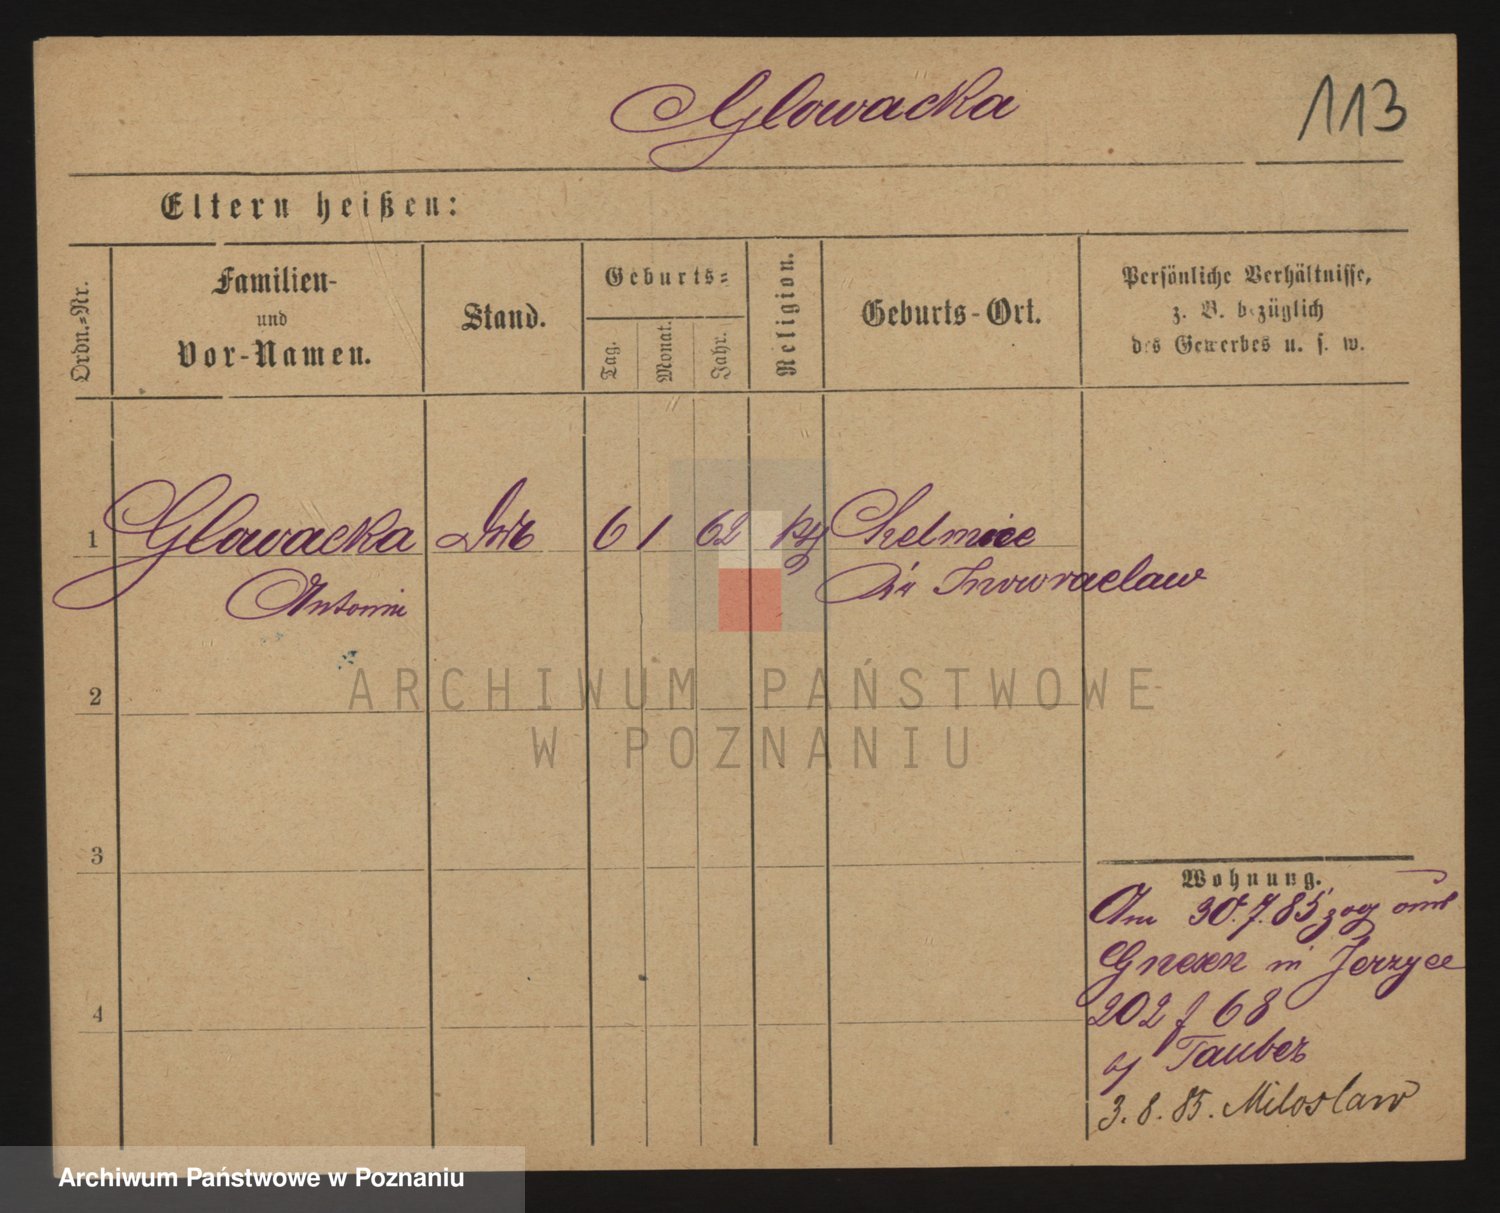 Glowacka
113
Eltern heißen:
Ordn.-Nr.
Familien-
und
Vor-Namen.
Stand.
Geburts-
Tag.
Monat.
Jahr.
Religion.
Geburts-Ort.
Persönliche Verhältnisse,
z. B. bezüglich
des Gewerbes u. s. w.
1 Glowacka 6 1 62 Chelmice
Antonie Inowraclaw
ARCHIWUM PAŃSTWOWE
W POZNANIU
2
3
4
Wohnung.
Am 30.7.85 zog aus
Gnesen in Jerzyce
202 f 68
by Tauber
3.8.85. Miloslaw
Archiwum Państwowe w Poznaniu